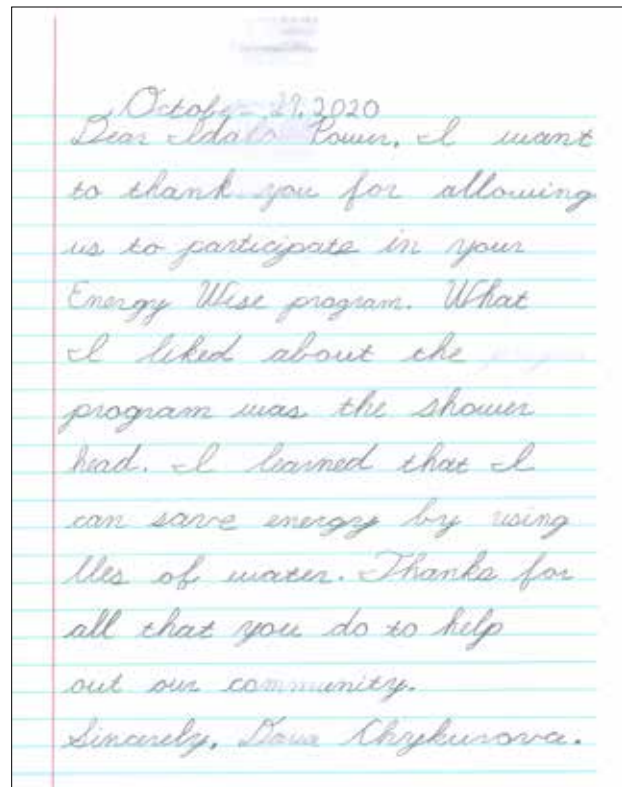 October 29, 2020
Dear Idaho Power, I want
to thank you for allowing
us to participate in your
Energy Wise program. What
I liked about the
program was the shower
head. I learned that I
can save energy by using
lles of water. Thanks for
all that you do to help
out our community.
Sincerely,